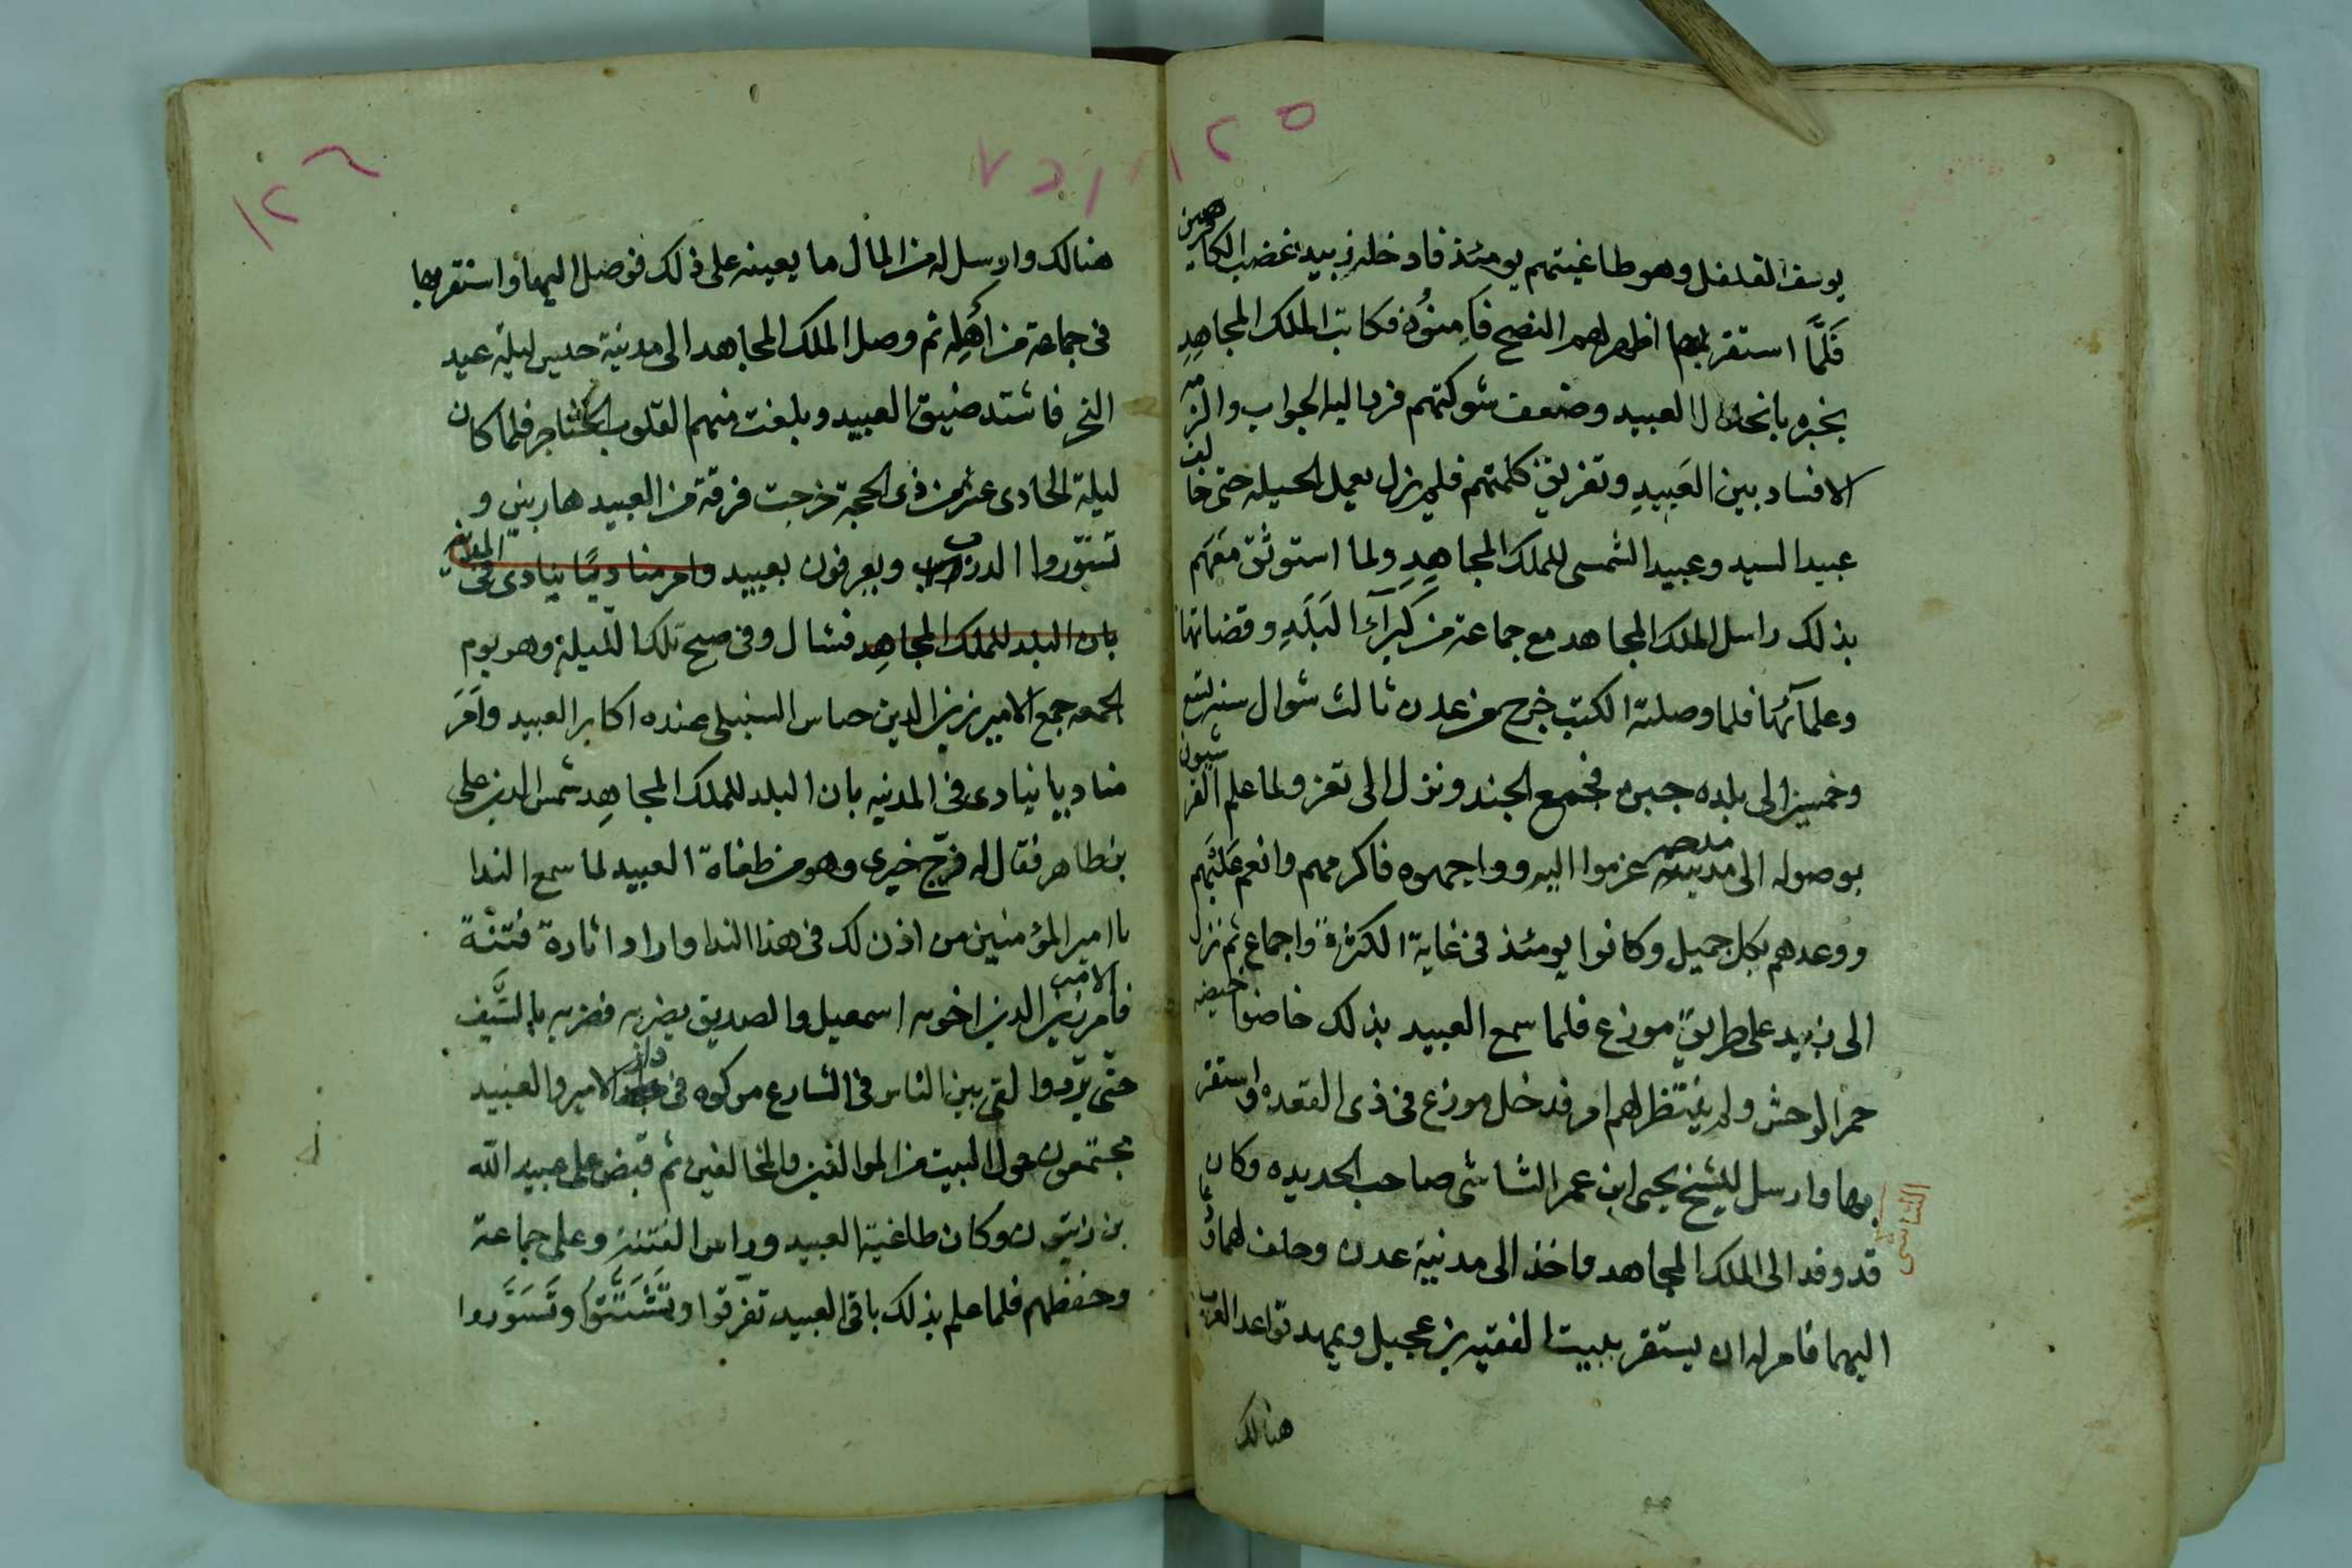 ١٢٥
يوسف القلقل وهو طاغيتهم يومئذ فادخله زبيد غضب الكارهين
فَلَمَّا استقر بها اظهر لهم النصح فَآمِنُوْهُ فكاتب الملك المجاهدِ
يخبره بانحلال العبيد وضعف شوكتهم فرد اليه الجواب والزمه
الافساد بين العَبِيدِ وتفريق كلمتهم فلم يزل يعمل الحيله حتى خالف
عبيد السيد وعبيد الشمسى للملك المجاهِدِ ولما استوثق معهم
بذلك راسل الملك المجاهد مع جماعة من كبرآء البَلَدِ وقضاتها
وعلمآئها فلما وصلته الكتب خرج من عدن ثالث شوال سنه تسع
وخمسين الى بلده جبن فجمع الجند ونزل الى تعز ولما علم القرشيون
بوصوله الى مدينة عزموا اليه وواجهوه فاكرمهم وانعم عَلَيْهم
ووعدهم بكل جميل وكانوا يومئذ فى غاية الكثرة واجماع ثم نزل
الى زبيد على طريق موزع فلما سمع العبيد بذلك حاصوا حيصه
حمر الوحش ولم ينتظر لهم امر فدخل موزع فى ذى القعده واستقر
بها وارسل للشيخ يحيى ابن عمر الثاشى صاحب الحديده وكان
الثاشى
قد وفد الى الملك المجاهد فاخذ الى مدنية عدن وحلف لهما
اليهما فامر له ان يستقر ببيت الفقيه بن عجيل ويمهد قواعد العرب
هنالك
١٢٦
هنالك وارسل له من المال ما يعينه على ذلك فوصل اليها واستقر بها
فى جماعة من اهلِه ثم وصل الملك المجاهد الى مدينة حيس ليلة عيد
النحر فاشتد ضيق العبيد وبلغت منهم القلوب الحناجر فلما كان
ليلة الحادى عشر من ذى الحجة خرجت فرقة من العبيد هاربين و
تسوّروا الدرب ويعرفون بعبيد وامر مناديًا ينادى فى المدينه
بان البلد للملك المجاهِد فشال وفى صبح تلك اللّيلة وهو يوم
الجمعه جمع الامير زين الدين حباس السنبلى عنده اكابر العبيد وأمَرَ
مناديا ينادى فى المدنيه بان البلد للملك المجاهِد شمس الدين على
بن طاهر فقال له فرج خيرى وهو من طغاة العبيد لما سمع الندا
يا امير المؤمنين من اذن لك فى هذا الندا واراد اثارة فتنة
فامر الامير زين الدين اخويه اسمعيل والصديق بضربه فضربه بالسَّيف
حتى برد والقى بين الناس فى الشارع من كوه فى دار الامير والعبيد
مجتمعون حول البيت من الموالفين والمخالفين ثم قبض على عبيد الله
بن زيتون وكان طاغية العبيد وراس الفتنة وعلى جماعة
وحفظهم فلما علم بذلك باقى العبيد تفرّقوا وتَشَتَّتُوا وتَسَوَّروا